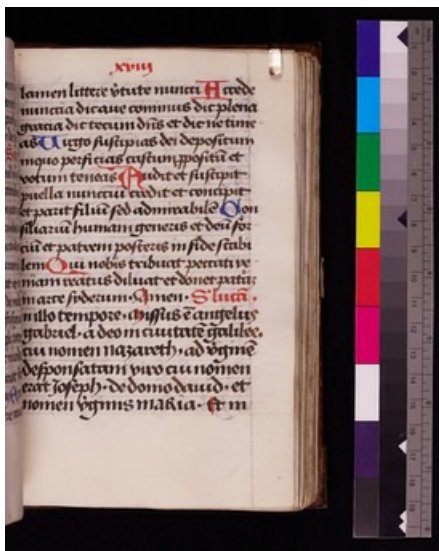 xviij
lamen littere v̄tute nuncii Accede
nuncia dic ave cominus dic plena
gracia dic tecum dn̄s et dic ne time
as Uirgo suscipias dei depositum
in quo perficias castum ꝓpositū et
votum teneas Audit et suscipit
puella nunciū credit et concipit
et parit filiū sed admirabilē Con
siliariū humani generis et deū for
ciū et patrem posteris in fide stabi
lem Qui nobis tribuat peccati ve
niam reatus diluat et donet patiā
in arce syderum. Amen. S. lucā.
n illo tempore. Missus ē angelus
gabriel. a deo in civitatē galilee.
cui nomen nazareth. ad v̄ginē
desponsatam viro cui nomen
erat Joseph. de domo david. et
nomen v̄ginis maria. Et in